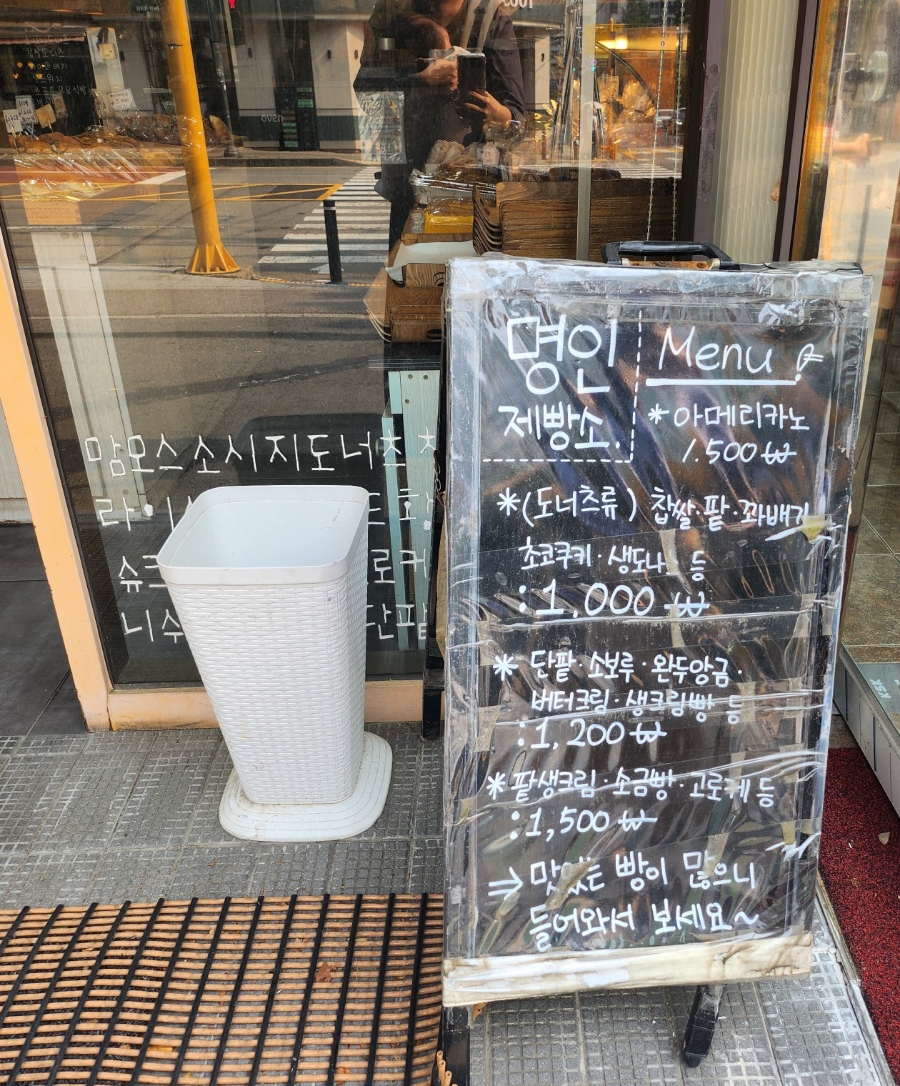 명인
제빵소.
Menu
* 아메리카노
1.500₩
*(도너츠류) 찹쌀·팥·꽈배기
초코쿠키·생도나 등
:1,000 ₩
* 단팥·소보루·완두앙금·
버터크림·생크림빵 등
:1,200 ₩
* 팥생크림·소금빵·고로케 등
:1,500 ₩
⇒ 맛있는 빵이 많으니
들어와서 보세요~
맘모스소시지도너츠